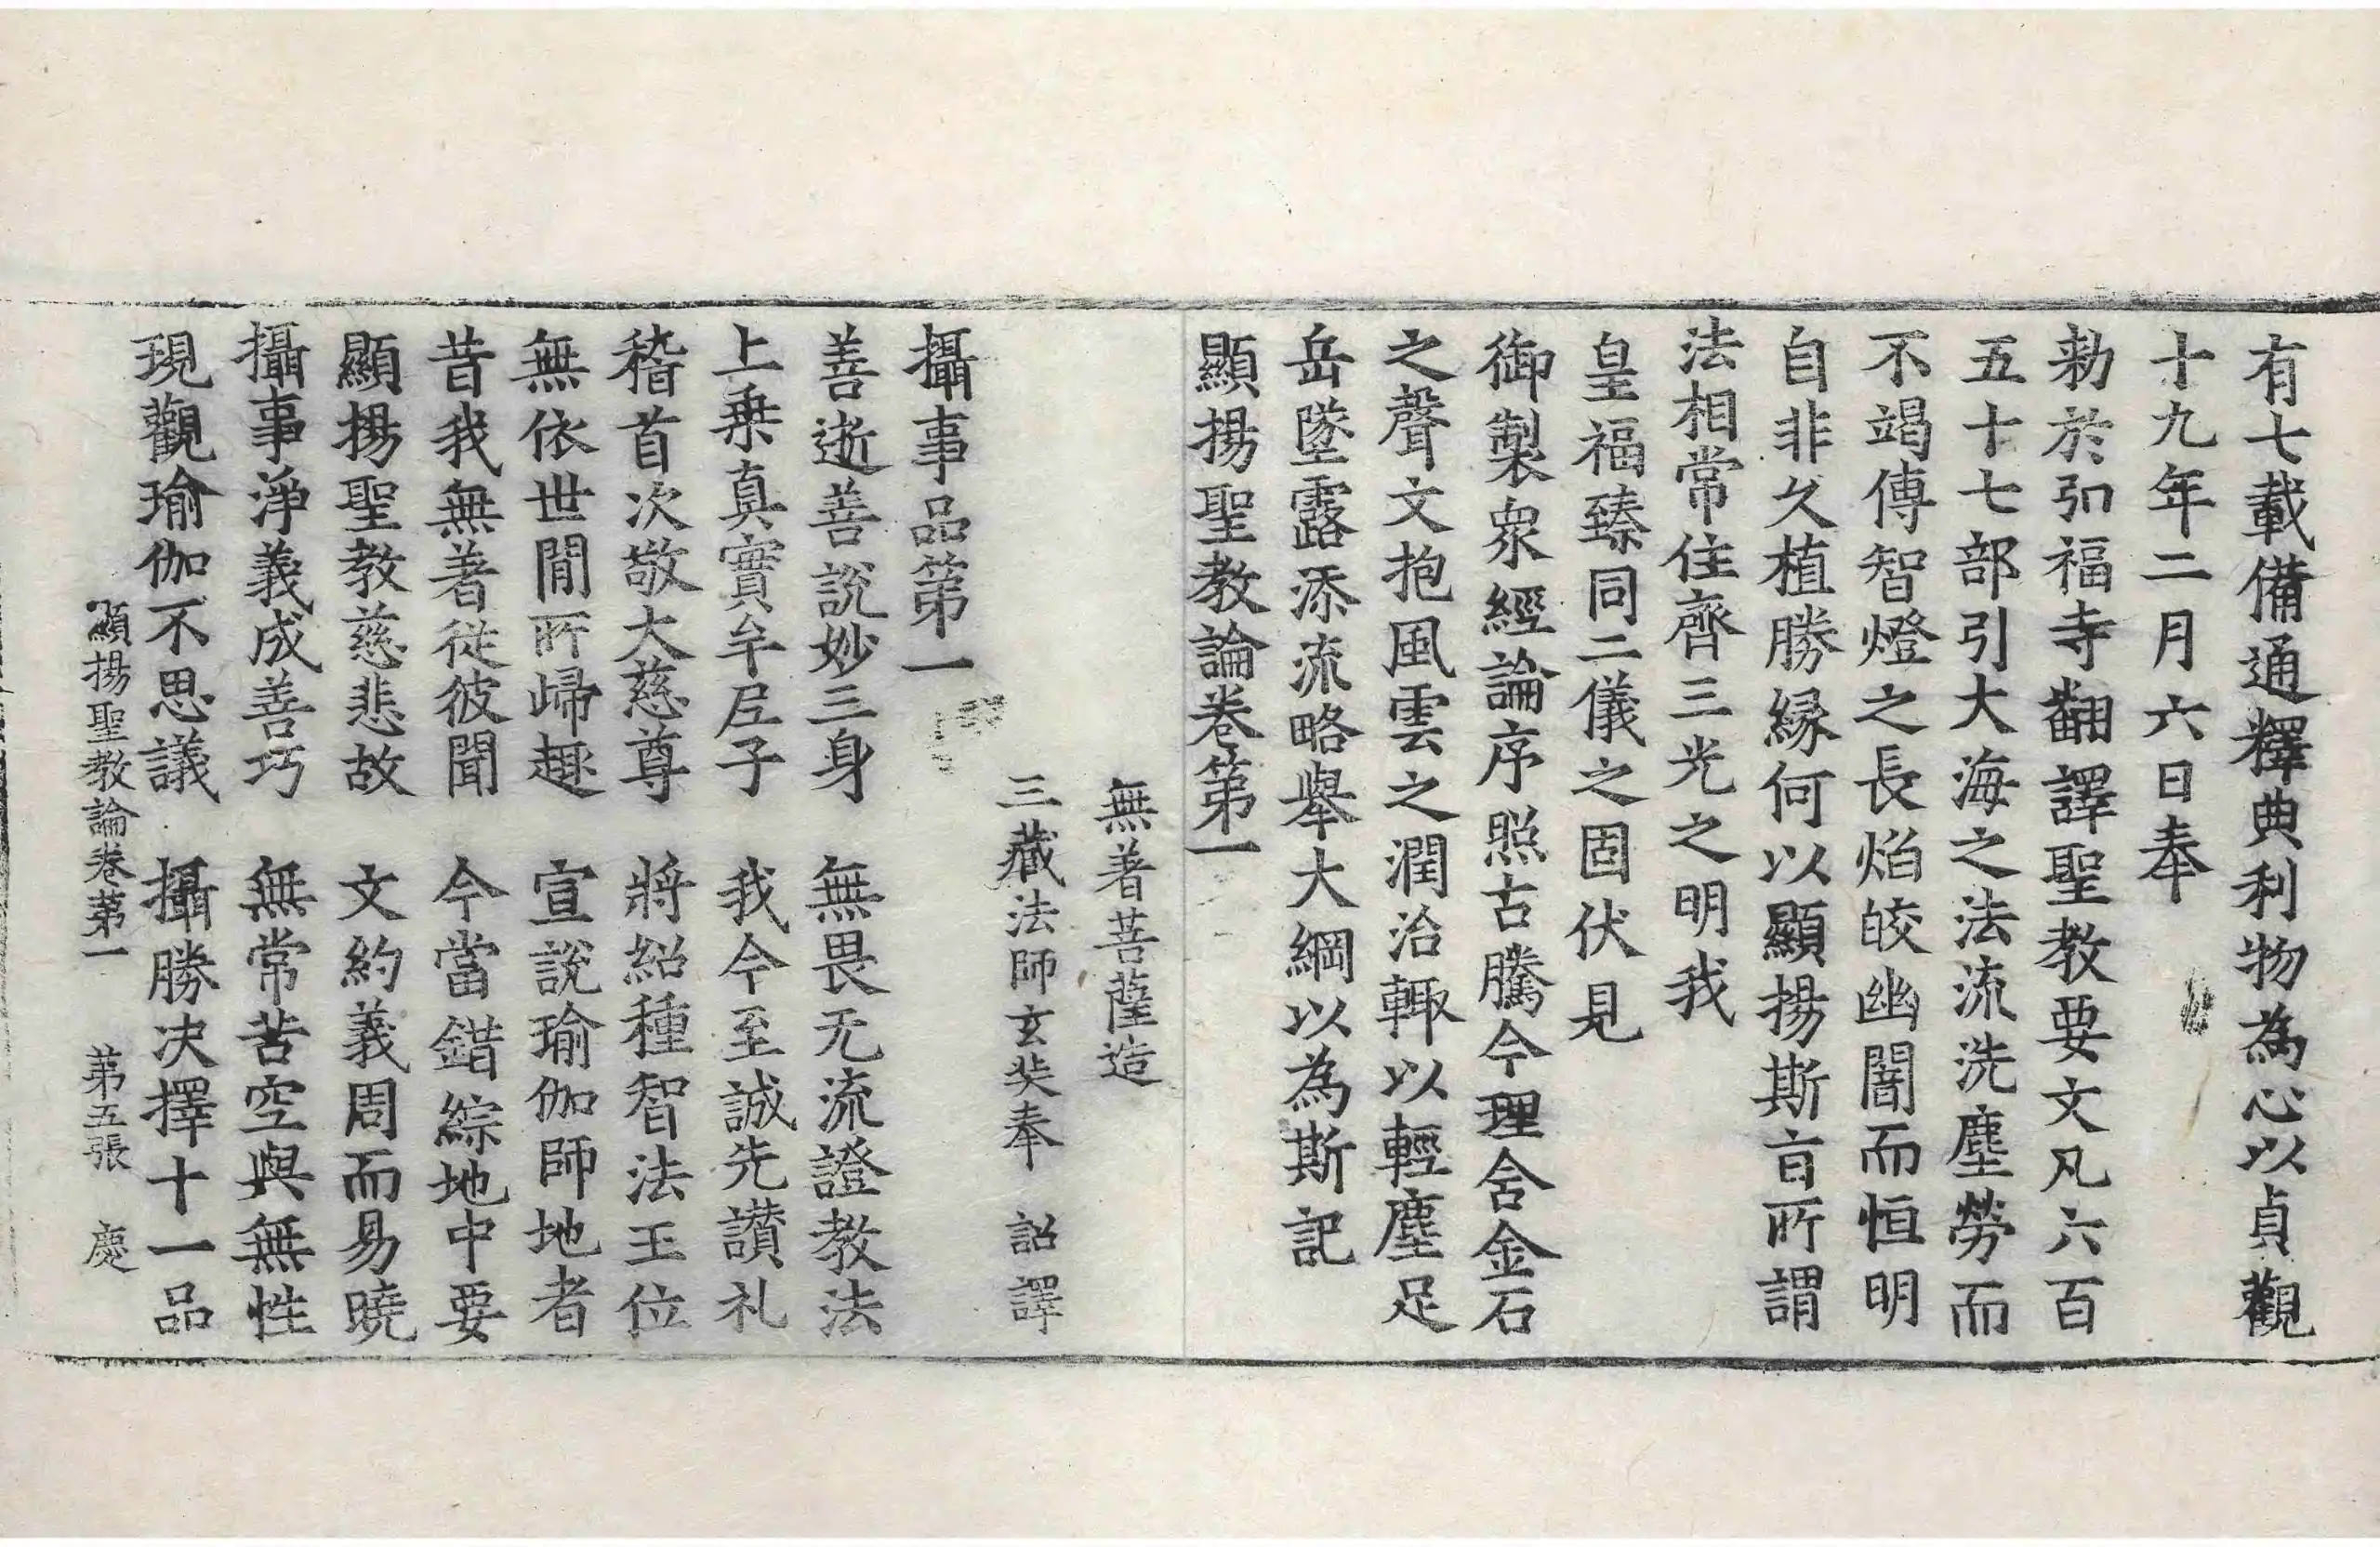 有七載備通釋典利物為心以貞觀
十九年二月六日奉
勑於弘福寺翻譯聖教要文凡六百
五十七部引大海之法流洗塵勞而
不竭傳智燈之長焰皎幽闇而恒明
自非久植勝縁何以顯揚斯旨所謂
法相常住齊三光之明我
皇福臻同二儀之固伏見
御製衆經論序照古騰今理含金石
之聲文抱風雲之潤治輙以輕塵足
岳墜露添流略舉大綱以為斯記
顯揚聖教論卷第一
無著菩薩造
三藏法師玄奘奉 詔譯
攝事品第一
善逝善說妙三身 無畏无流證教法
上乗真實牟尼子 我今至誠先讃礼
稽首次敬大慈尊 將紹種智法王位
無依世間所歸趣 宣說瑜伽師地者
昔我無著從彼聞 今當錯綜地中要
顯揚聖教慈悲故 文約義周而易曉
攝事淨義成善巧 無常苦空與無性
現觀瑜伽不思議 攝勝决擇十一品
顯揚聖教論卷苐一 苐五張 慶